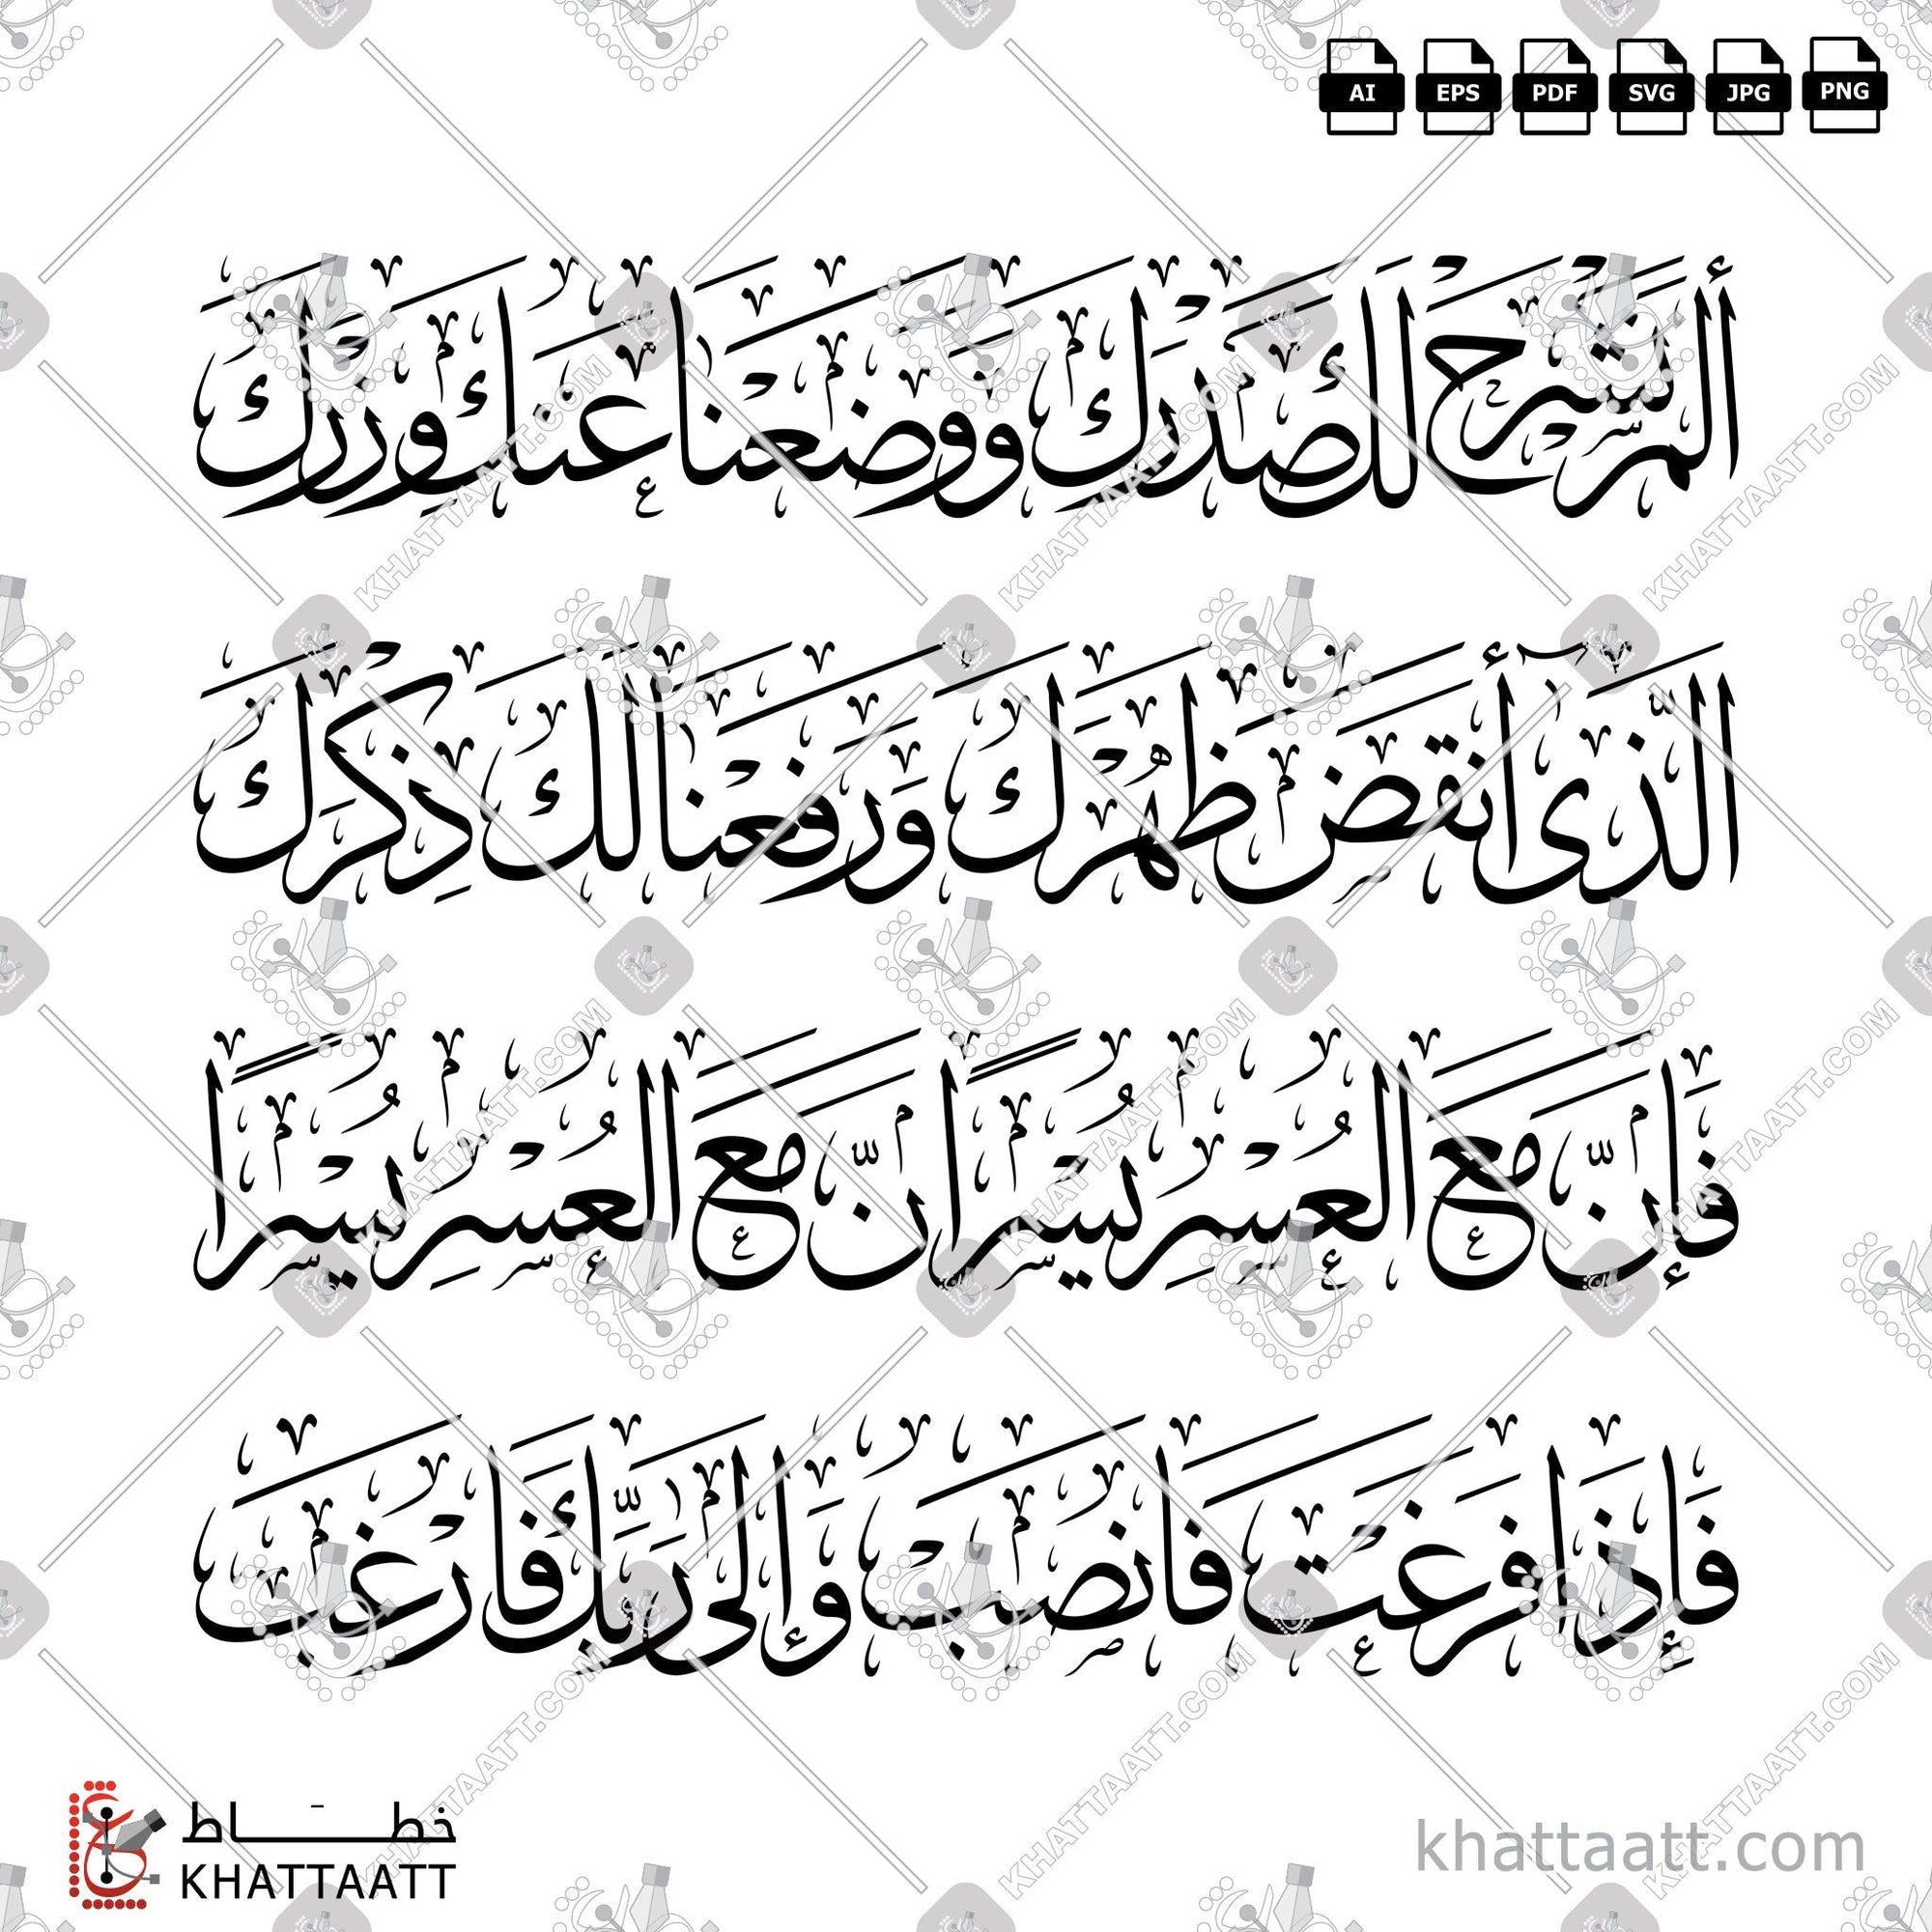 AI EPS PDF SVG JPG PNG
أَلَمْ نَشْرَحْ لَكَ صَدْرَكَ وَوَضَعْنَا عَنكَ وِزْرَكَ
الَّذِى أَنقَضَ ظَهْرَكَ وَرَفَعْنَا لَكَ ذِكْرَكَ
فَإِنَّ مَعَ الْعُسْرِ يُسْرًا إِنَّ مَعَ الْعُسْرِ يُسْرًا
فَإِذَا فَرَغْتَ فَانصَبْ وَإِلَى رَبِّكَ فَارْغَب
خطاط
KHATTAATT
khattaatt.com
KHATTAATT.COM